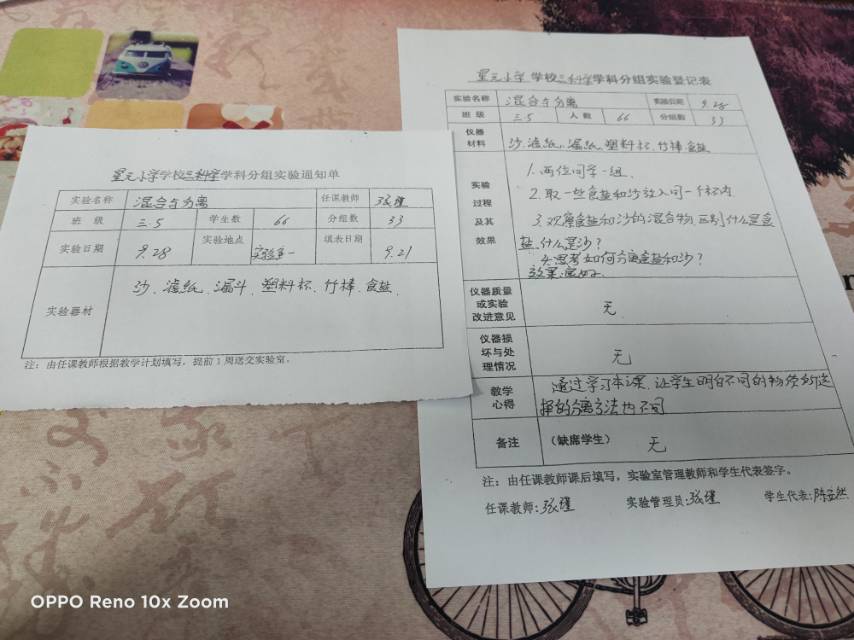 星元小学学校三科学学科分组实验通知单
实验名称 混合与分离 任课教师 张瑾
班 级 三.5 学生数 66 分组数 33
实验日期 9.28 实验地点 实验室一 填表日期 9.21
实验器材 沙、滤纸、漏斗、塑料杯、竹棒、食盐、
注:由任课教师根据教学计划填写,提前1周送交实验室。
星元小学学校三科学学科分组实验登记表
实验名称 混合与分离 实验日期 9.28
班 级 三.5 人 数 66 分组数 33
仪器材料 沙、滤纸、漏纸、塑料杯、竹棒、食盐
实验过程及其效果
1.两位同学一组.
2.取一些食盐和沙放入同一个杯内
3.观察食盐和沙的混合物,区别什么是食
盐,什么是沙?
4.思考如何分离食盐和沙?
效果:良好.
仪器质量或实验改进意见 无
仪器损坏与处理情况 无
教学心得 通过学习本课,让学生明白不同的物质的选
择的分离方法也不同
备注 (缺席学生) 无
注:由任课教师课后填写,实验室管理教师和学生代表签字。
任课教师:张瑾 实验管理员:张瑾 学生代表:陈
OPPO Reno 10x Zoom